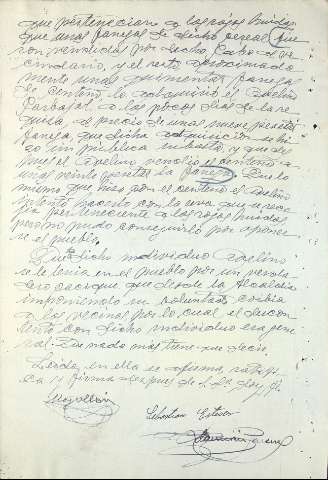 que pertenecian a las rojas huidas
que unas fanegas de dicho cereal fue
ron vendidas por dicho Cabo al ve
cindario, y el resto aproximada
mente unas fanegas
de centeno lo adquirió el Avelino
Carbajal a los pocos dias de la re
quisa al precio de unas nueve pesetas
fanega, que dicha adquisicion se hi
zo sin publica subasta y que des
pues el Avelino vendio el centeno a
unas veinte pesetas la fanega. Que lo
mismo que hizo con el centeno el Avelino
intentó hacerlo con la uva que se reco
gia perteneciente a las rojas huidas
pero no pudo conseguirlo por oponer
se el pueblo.
Que dicho individuo Avelino
se le tenia en el pueblo por un verda
dero cacique que desde la Alcaldia
imponiendo su voluntad
a los vecinos por lo cual el descon
tento con dicho individuo era gene
ral. Que nada mas tiene que decir.
Leida en ella se afirma, ratifi
ca y firma despues de S.Sª doy fe.
Sebastian Esteban